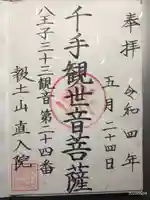 奉拝
令和四年
五月二十四日
千手観世音菩薩
八王子三十三観音第二十四番
報土山 直入院